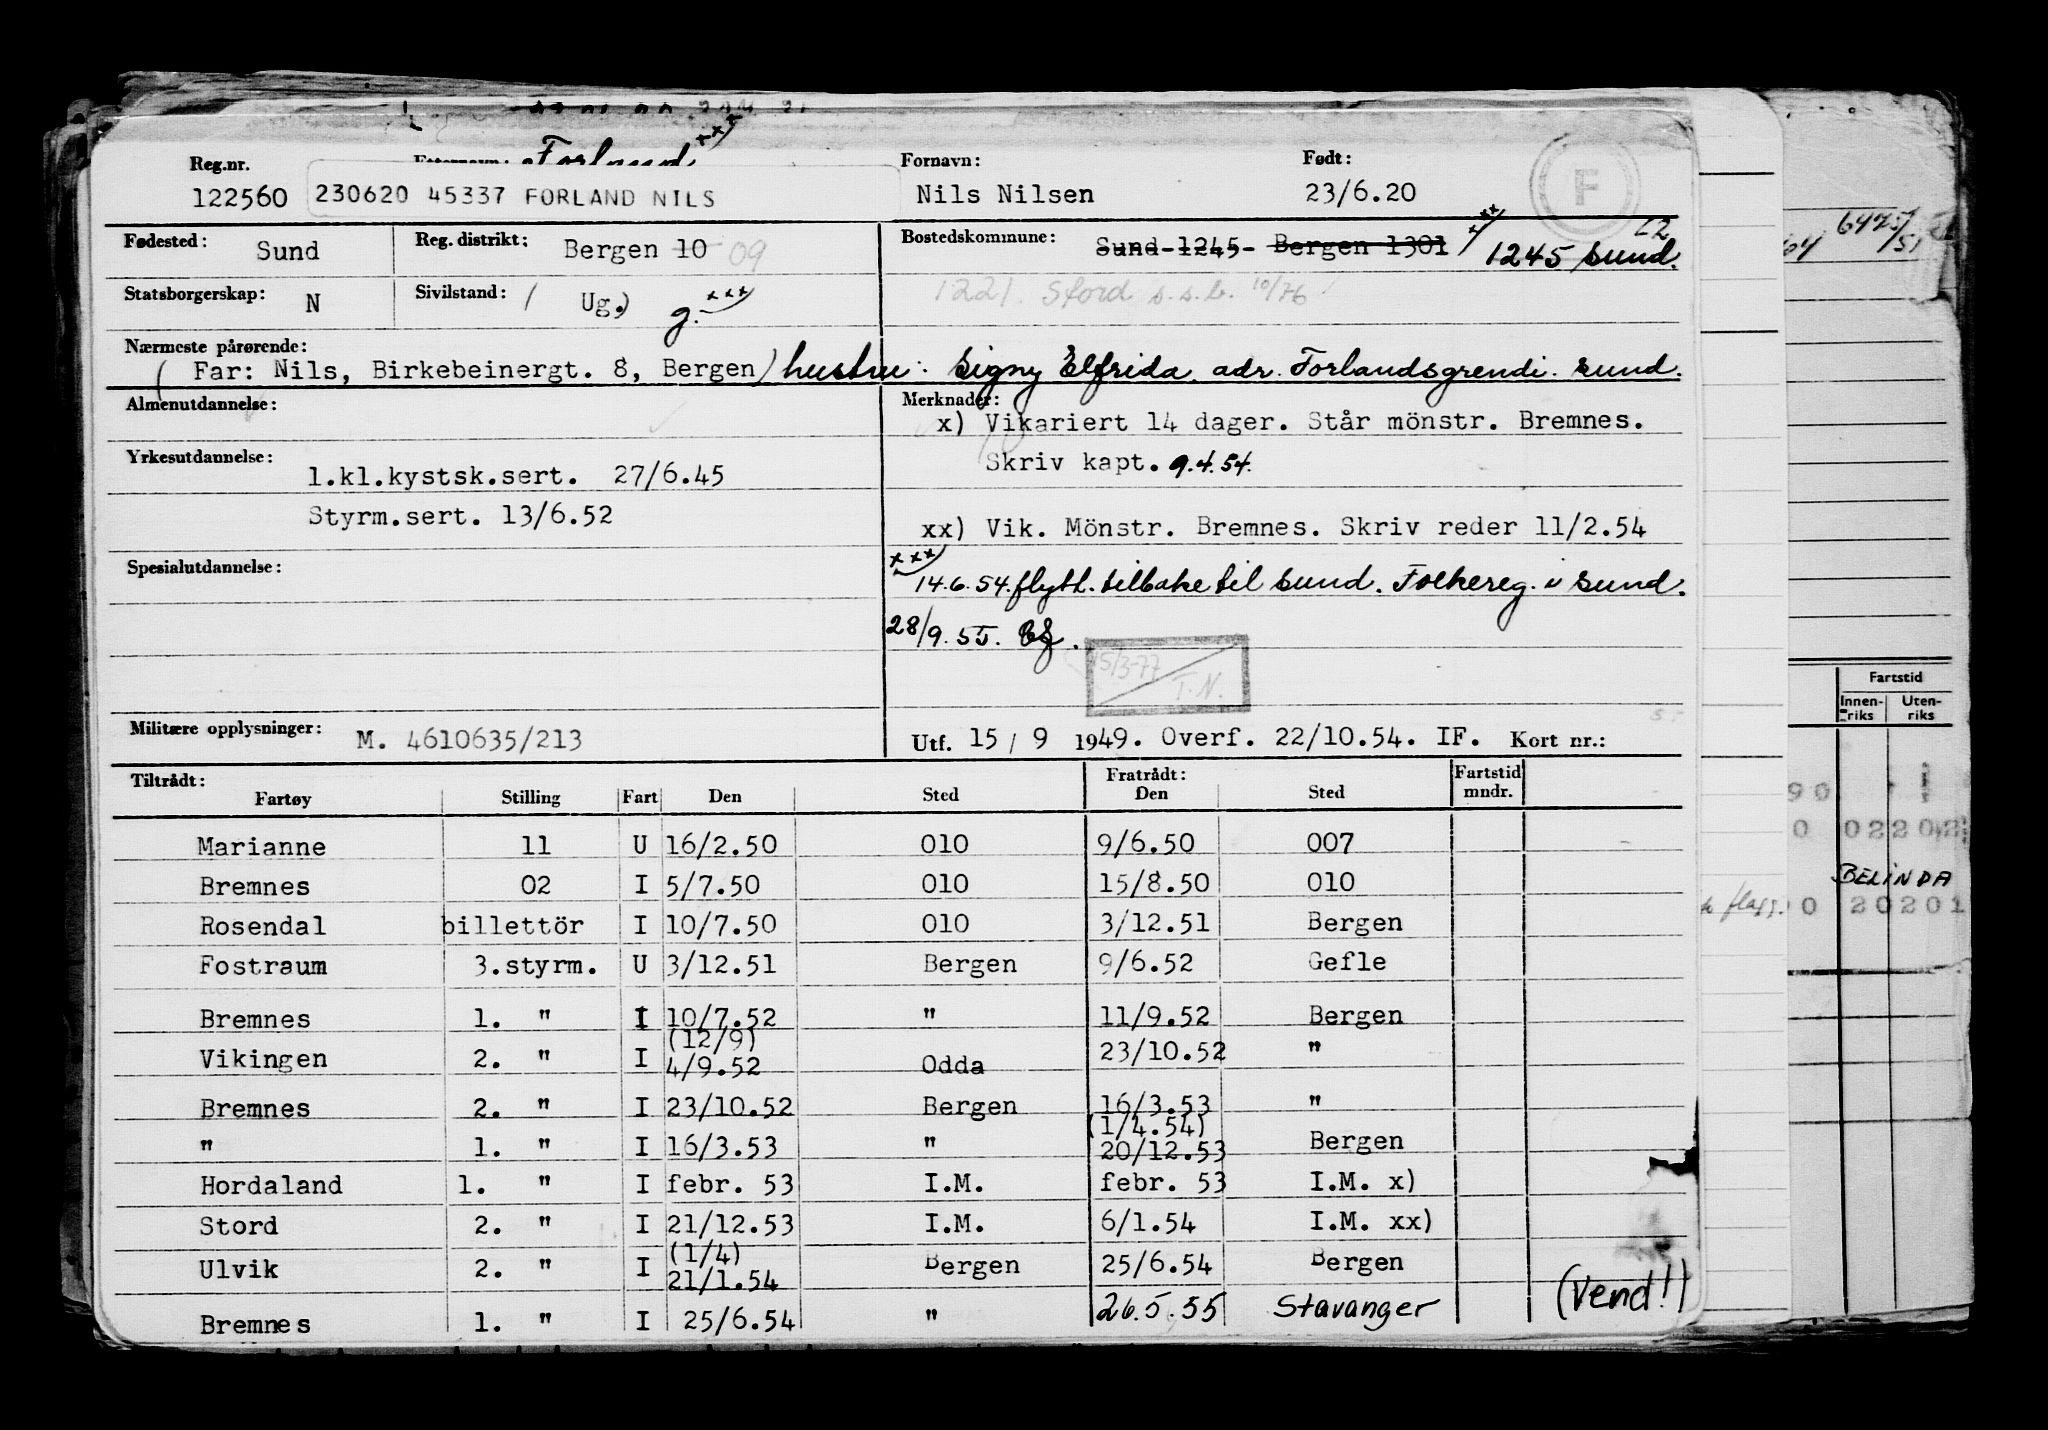 Forland xxx)
Reg.nr. Fornavn: Født:
122560 230620 45337 FORLAND NILS Nils Nilsen 23/6.20 F
Fødested: Sund Reg. distrikt: Bergen 10 09 Bostedskommune: Sund 1245 Bergen 1301 xx) 1245 Sund.
Statsborgerskap: N Sivilstand: ( Ug.) g. xxx) 1221. Stord s.s.b. 10/76
Nærmeste pårørende:
( Far: Nils, Birkebeinergt. 8, Bergen) hustru: Signy Elfrida. adr. Forlandsgrendi. Sund.
Almenutdannelse: Merknader:
x) Vikariert 14 dager. Står mönstr. Bremnes.
Skriv kapt. 9.4.54.
Yrkesutdannelse:
1.kl.kystsk.sert. 27/6.45
Styrm.sert. 13/6.52
xx) Vik. Mönstr. Bremnes. Skriv reder 11/2.54
Spesialutdannelse:
xxx)
14.6.54. flytt. tilbake til Sund. Folkereg. i Sund.
28/9.55.
15/3-77
T.N.
Militære opplysninger: M. 4610635/213 Utf. 15/9 1949. Overf. 22/10.54. IF. Kort nr.:
Tiltrådt: Fratrådt: Fartstid
Fartøy Stilling Fart Den Sted Den Sted mndr.
Marianne 11 U 16/2.50 010 9/6.50 007
Bremnes 02 I 5/7.50 010 15/8.50 010
Rosendal billettör I 10/7.50 010 3/12.51 Bergen
Fostraum 3.styrm. U 3/12.51 Bergen 9/6.52 Gefle
Bremnes 1. " I 10/7.52 " 11/9.52 Bergen
(12/9)
Vikingen 2. " I 4/9.52 Odda 23/10.52 "
Bremnes 2. " I 23/10.52 Bergen 16/3.53 "
(1/4.54)
" 1. " I 16/3.53 " 20/12.53 Bergen
Hordaland 1. " I febr. 53 I.M. febr. 53 I.M. x)
Stord 2. " I 21/12.53 I.M. 6/1.54 I.M. xx)
(1/4)
Ulvik 2. " I 21/1.54 Bergen 25/6.54 Bergen
Bremnes 1. " I 25/6.54 " 26.5.55 Stavanger (Vend!)
Fartstid
Innen-riks Uten-riks
90
0 02202
BELINDA
flagg. 0 20201